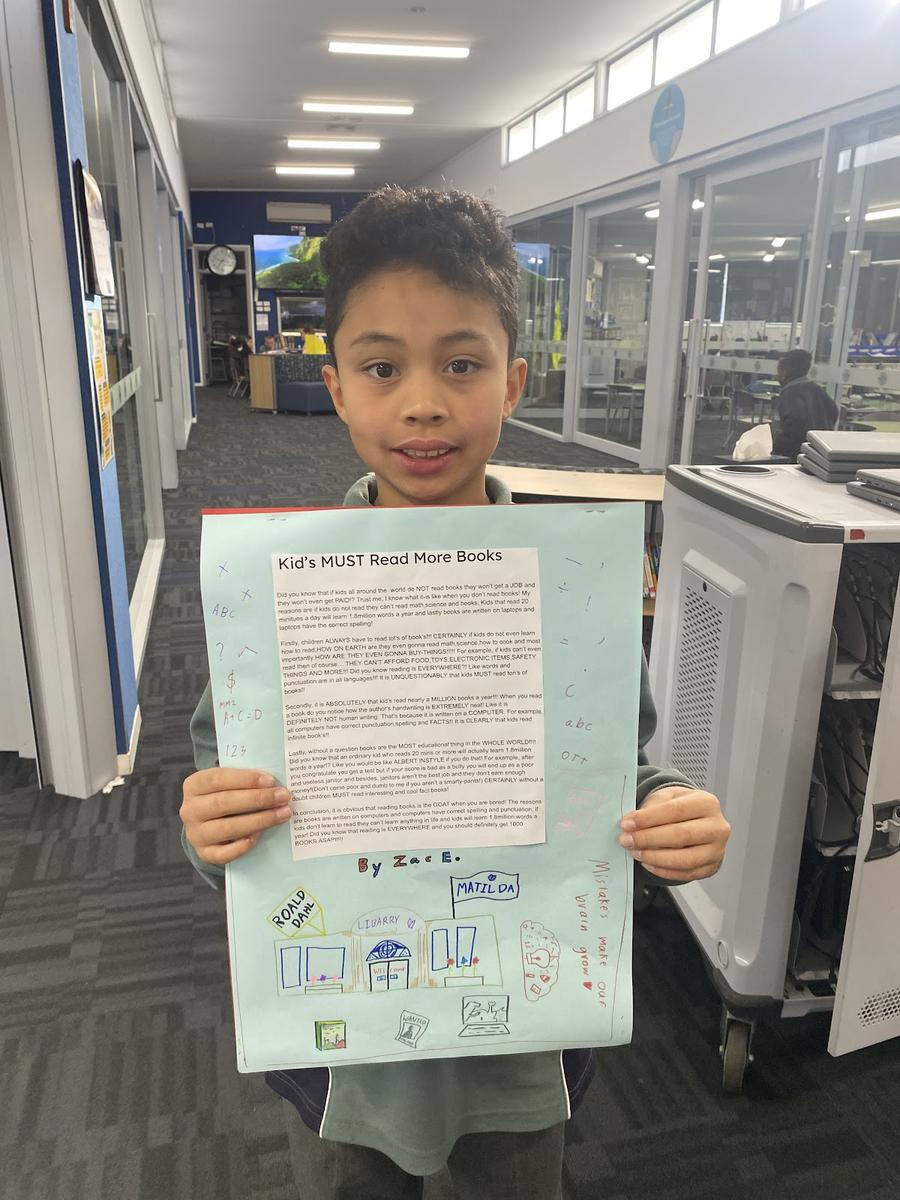 Kid's MUST Read More Books
Did you know that if kids all around the world do NOT read books they won't get a JOB and
they won't even get PAID!? Trust me, I know what it is like when you don't read books! My
reasons are if kids do not read they can't read math,science and books. Kids that read 20
minitues a day will learn 1.8million words a year and lastly books are written on laptops and
laptops have the correct spelling!
Firstly, children ALWAYS have to read lot's of book's!!! CERTAINLY if kids do not even learn
how to read,HOW ON EARTH are they even gonna read math,science,how to cook and most
importantly HOW ARE THEY EVEN GONNA BUY-THINGS!!!! For example, if kids can't even
read then of course.... THEY CAN'T AFFORD FOOD,TOYS,ELECTRONIC ITEMS,SAFETY
THINGS AND MORE!!! Did you know reading is EVERYWHERE!? Like words and
punctuation are in all languages!!! It is UNQUESTIONABLY that kids MUST read ton's of
books!!
Secondly, it is ABSOLUTELY that kid's read nearly a MILLION books a year!!! When you read
a book do you notice how the author's handwriting is EXTREMELY neat! Like it is
DEFINITELY NOT human writing. That's because it is written on a COMPUTER. For example,
all computers have correct punctuation,spelling and FACTS!! It is CLEARLY that kids read
infinite book's!!
Lastly, without a question books are the MOST educational thing in the WHOLE WORLD!!!!
Did you know that an ordinary kid who reads 20 mins or more will actually learn 1.8million
words a year!? Like you would be like ALBERT INSTYLE if you do that! For example, after
you congratulate you get a test but if your score is bad as a bully you will end up as a poor
and useless janitor and besides, janitors aren't the best job and they don't earn enough
money!(Don't come poor and dumb to me if you aren't a smarty-pants!) CERTAINLY without a
doubt children MUST read interesting and cool fact books!
In conclusion, it is obvious that reading books is the GOAT when you are bored! The reasons
are books are written on computers and computers have correct spelling and punctuation, if
kids don't learn to read they can't learn anything in life and kids will learn 1.8million words a
year! Did you know that reading is EVERYWHERE and you should definitely get 1000
BOOKS ASAP!!!!
By Zac E.
x
x
ABC
?
$
mm2
A+C=D
123
÷
!
=
,
.
C
abc
Mistakes make our
brain grow
ROALD
DAHL
LIBARRY
MATILDA
Welcome
WANTED